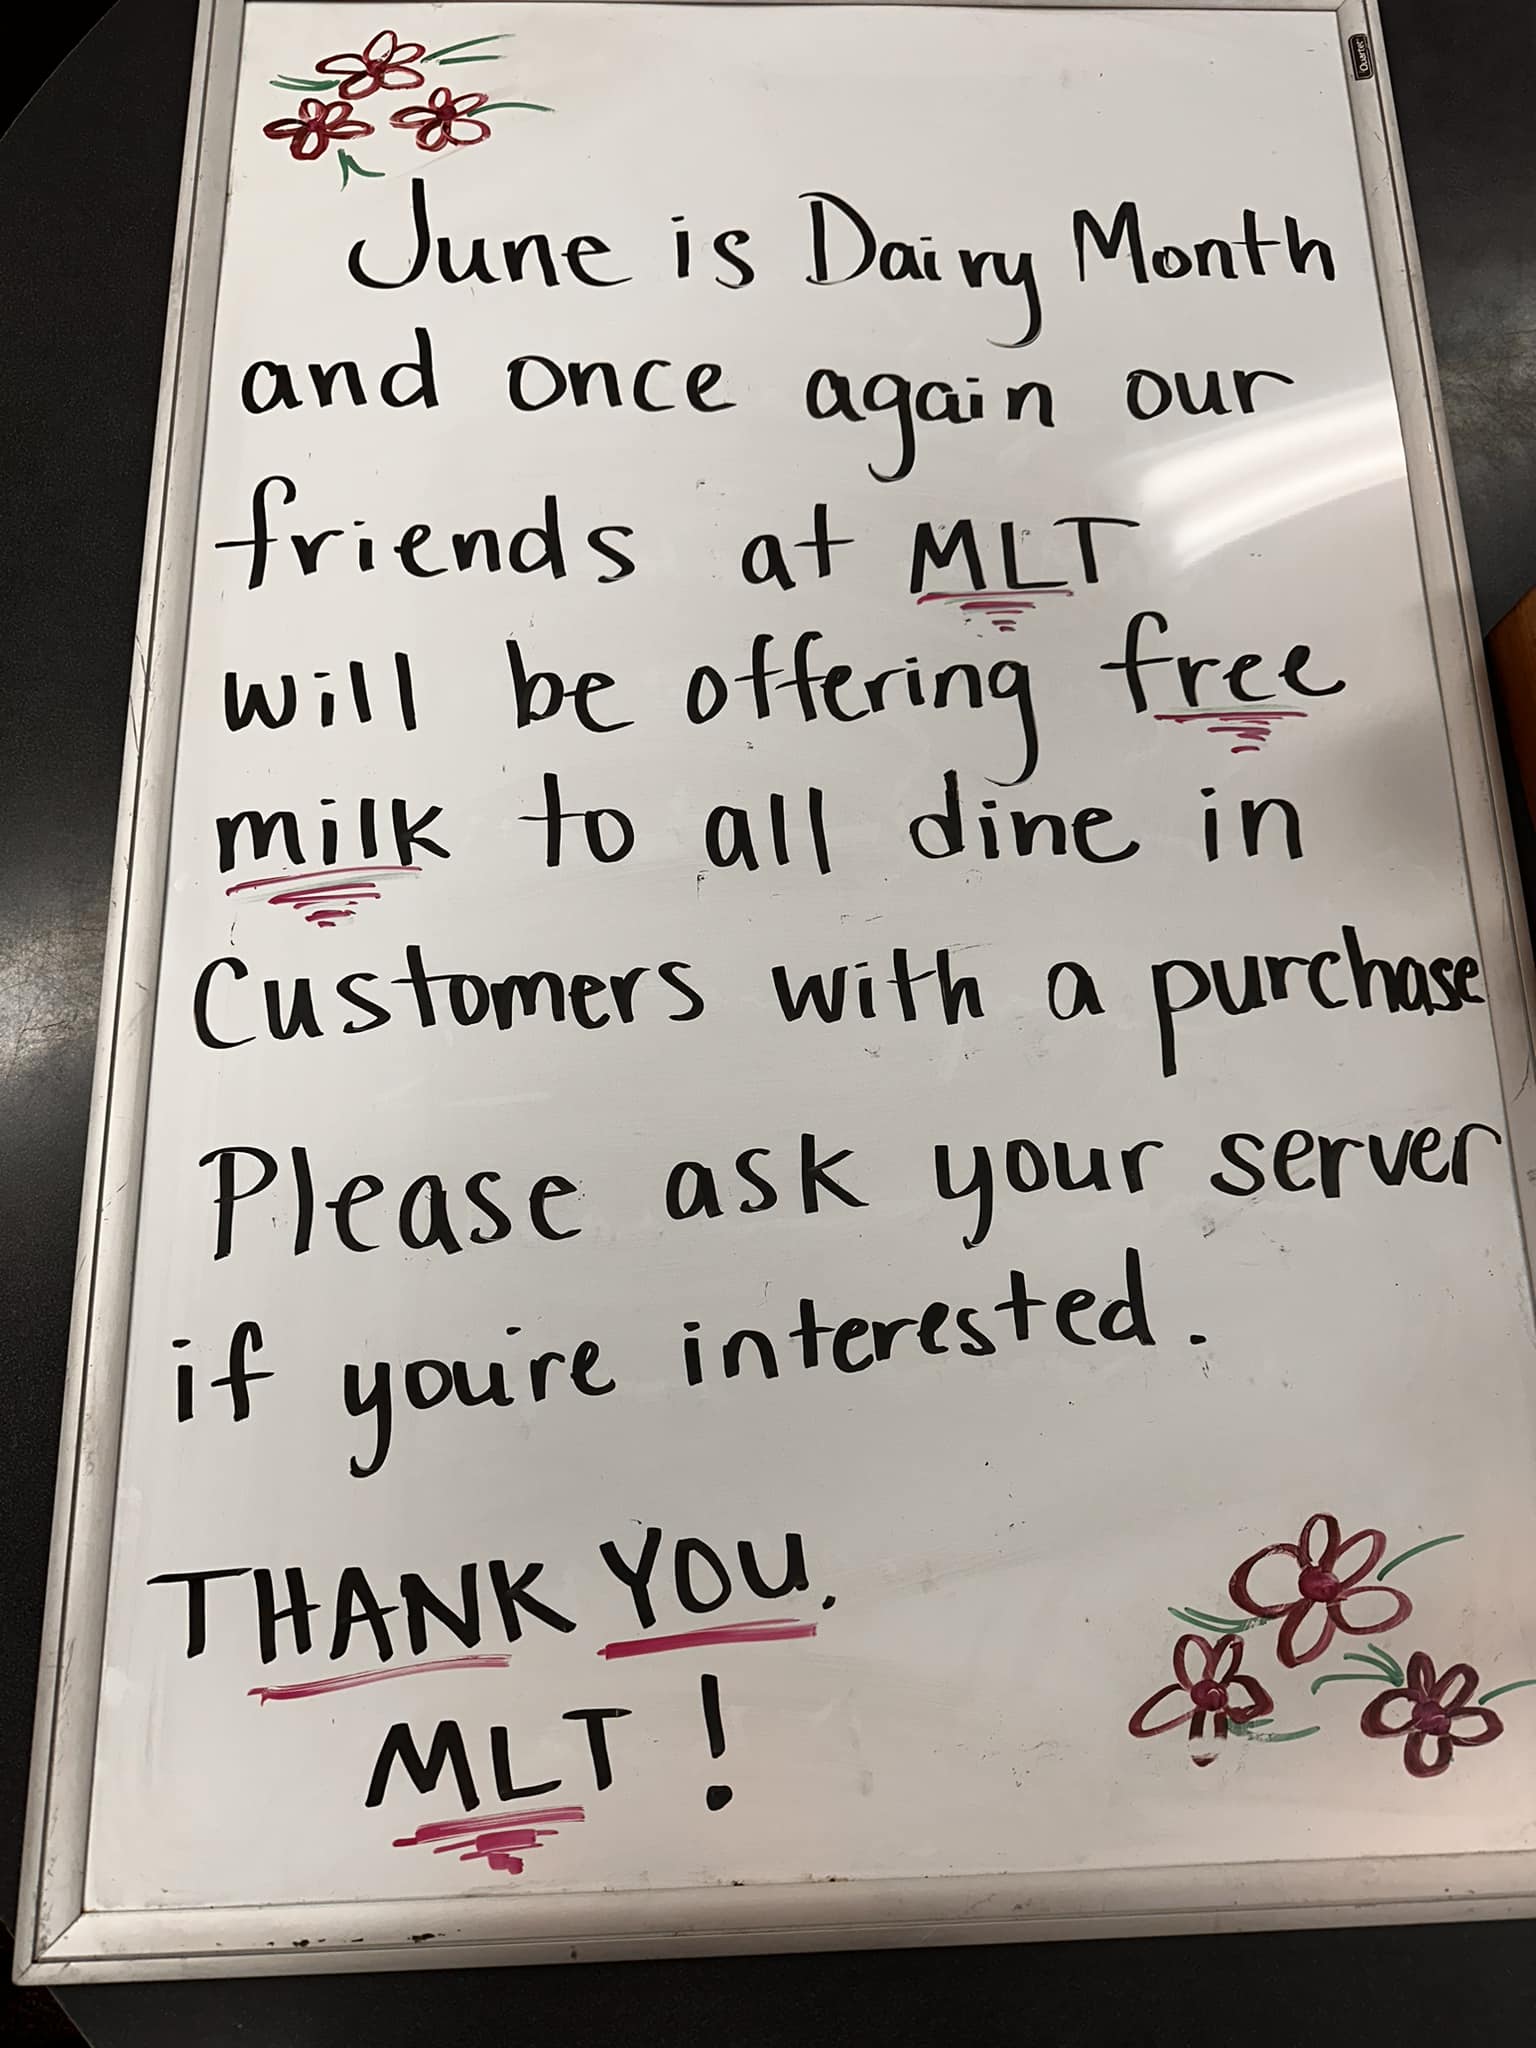 Quartet
June is Dairy Month
and once again our
friends at MLT
will be offering free
milk to all dine in
Customers with a purchase
Please ask your server
if you're interested.
THANK YOU.
MLT!